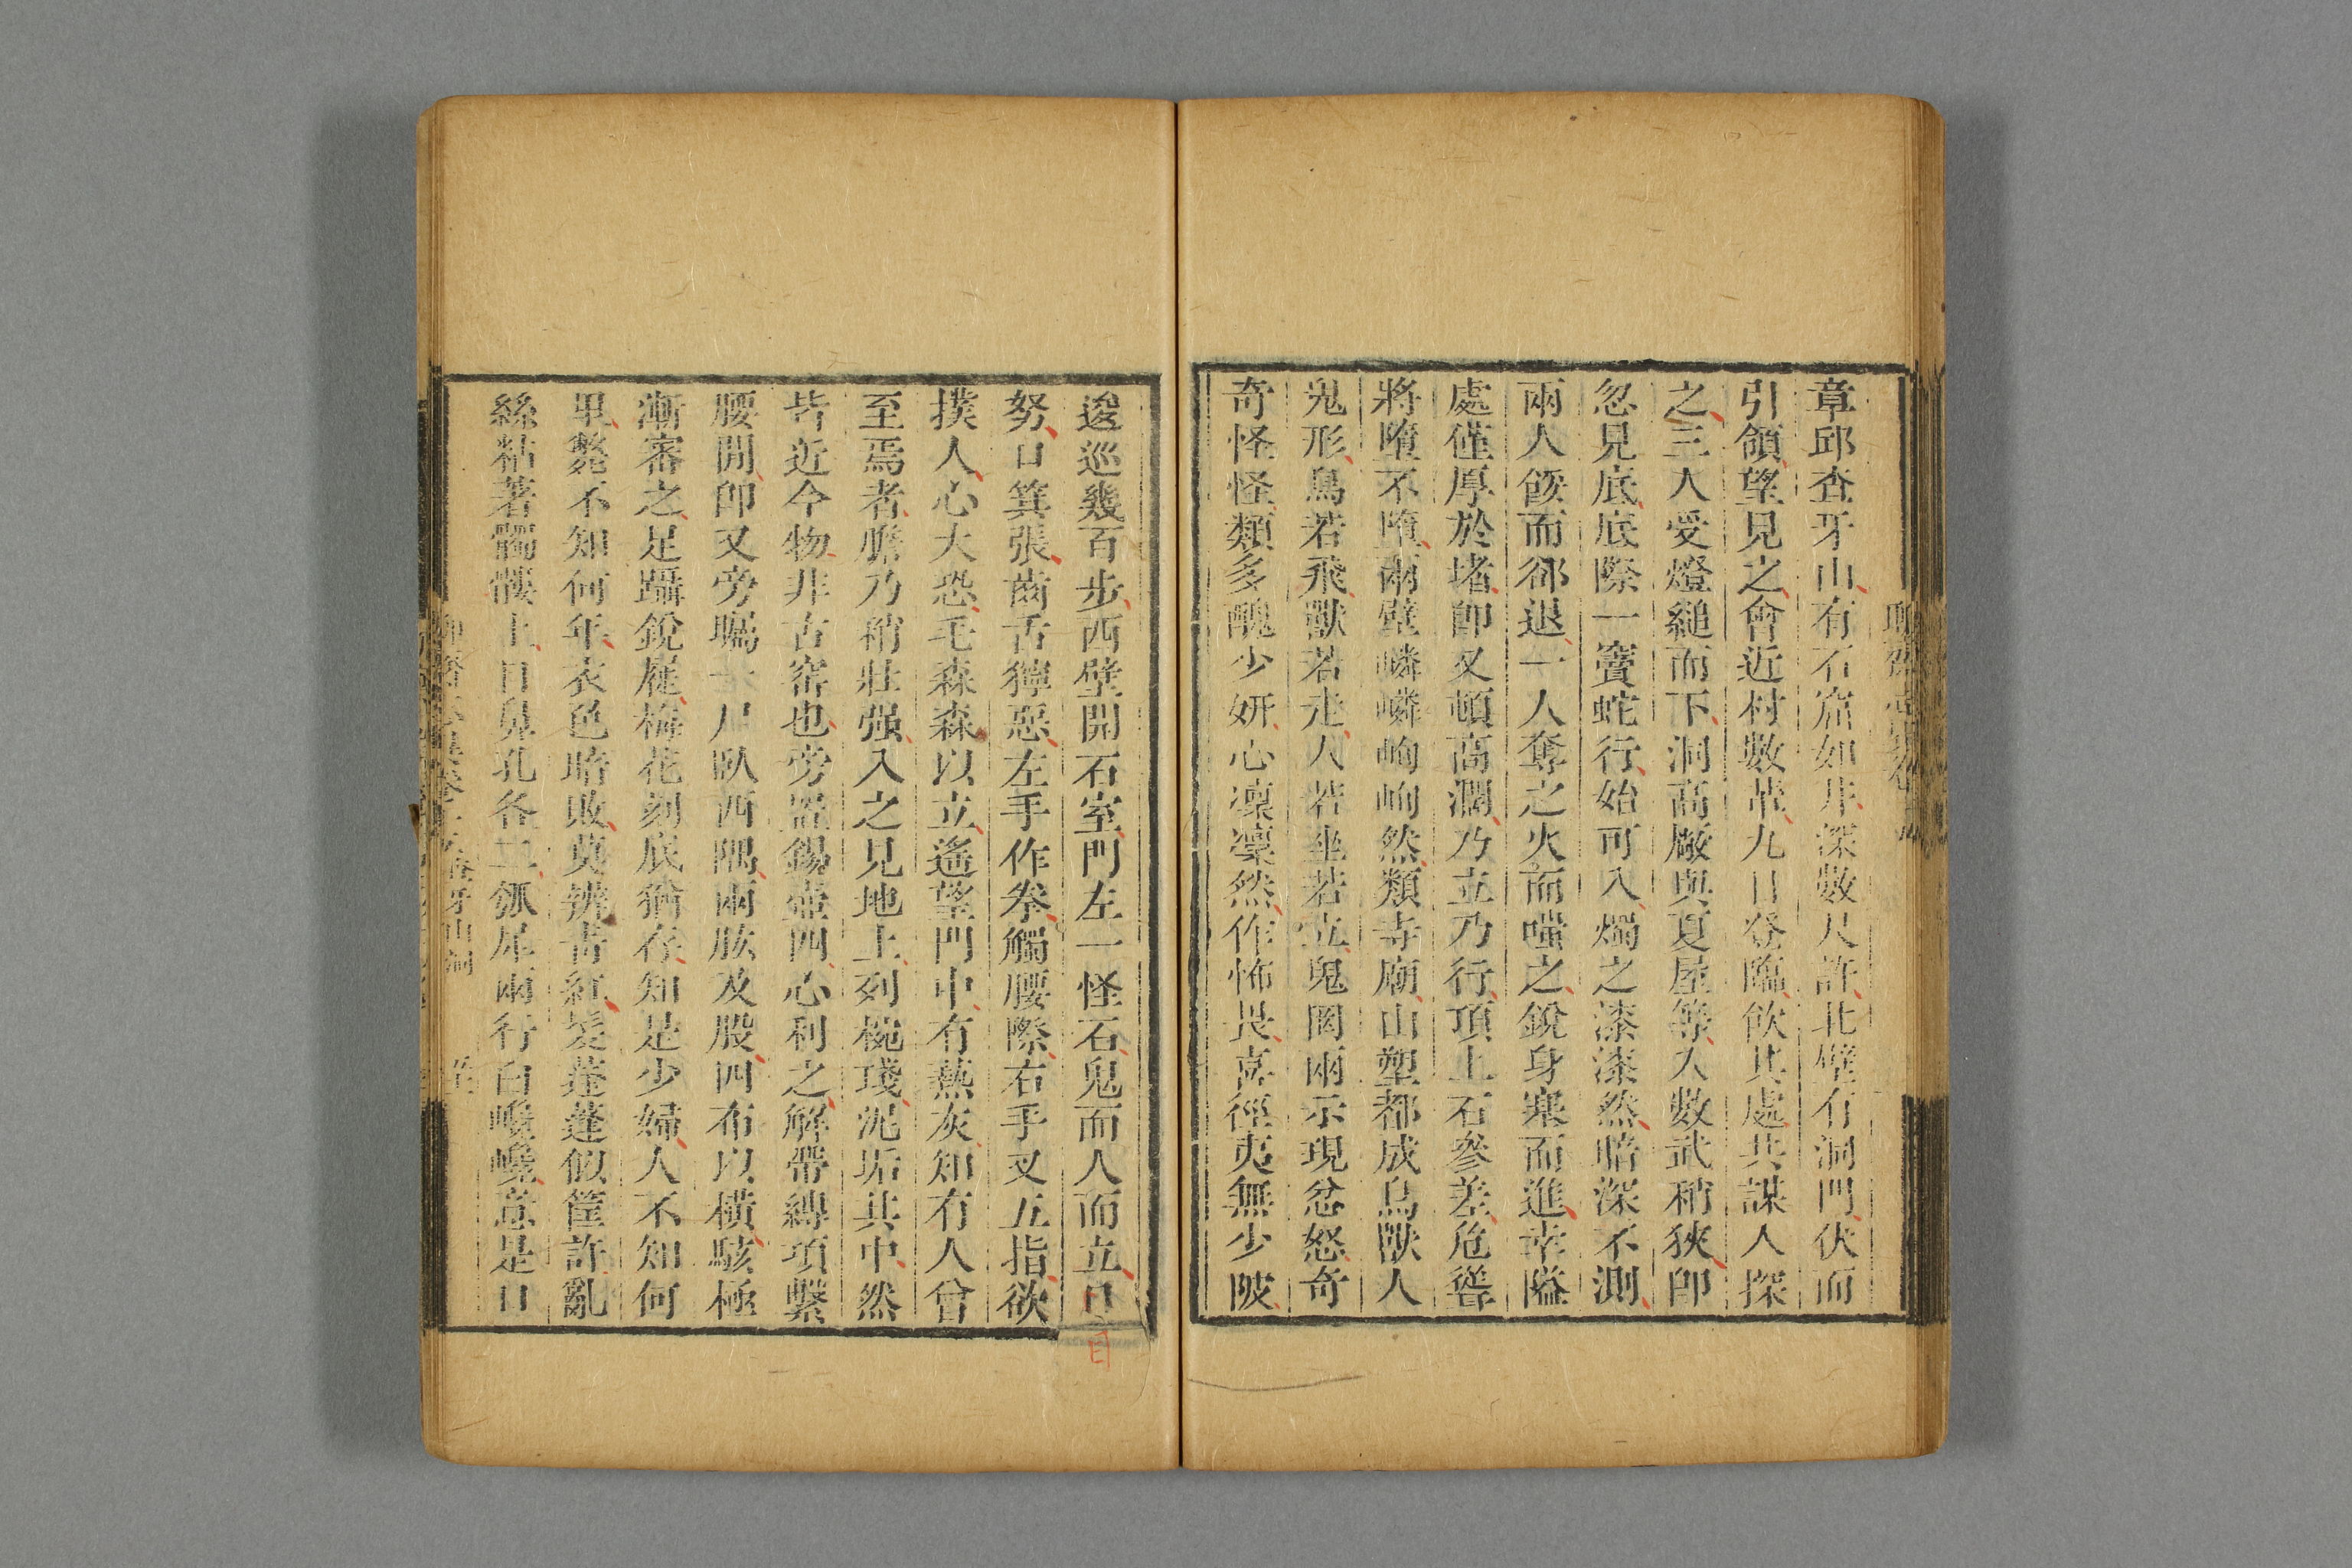 章邱查牙山有石窟如井深數尺許北壁有洞門伏而
引領望見之會近村數輩九日登臨飲其處共謀入探
之三人受燈縋而下洞高敞與夏屋等入數武稍狹即
忽見底底際一竇蛇行始可入燭之漆漆然暗深不測
兩人餒而卻退一人奪之火而嗤之銳身塞而進幸隘
處僅厚於堵即又頓高濶乃立乃行頂上石參差危聳
將墮不墮兩壁嶙嶙峋峋然類寺廟山塑都成鳥獸人
鬼形鳥若飛獸若走人若坐若立鬼罔兩示現忿怒奇
奇怪怪類多醜少妍心凜凜然作怖畏喜徑夷無少陂
逡巡幾百步西壁開石室門左一怪石鬼而人而立目
目
努口箕張齒舌獰惡左手作拳觸腰際右手叉五指欲
撲人心大恐毛森森以立遙望門中有爇灰知有人曾
至焉者膽乃稍壯强入之見地上列椀琖泥垢其中然
皆近今物非古窰也旁置錫壺四心利之解帶縛項繫
腰間卽又旁矚一尸臥西隅兩肱及股四布以橫駭極
漸審之足躡銳屣梅花刻底猶存知是少婦人不知何
里斃不知何年衣色暗敗莫辨靑紅髮蓬蓬似筐許亂
絲粘著髑髏上目鼻孔各二瓠犀兩行白巉巉意是口
查牙山洞